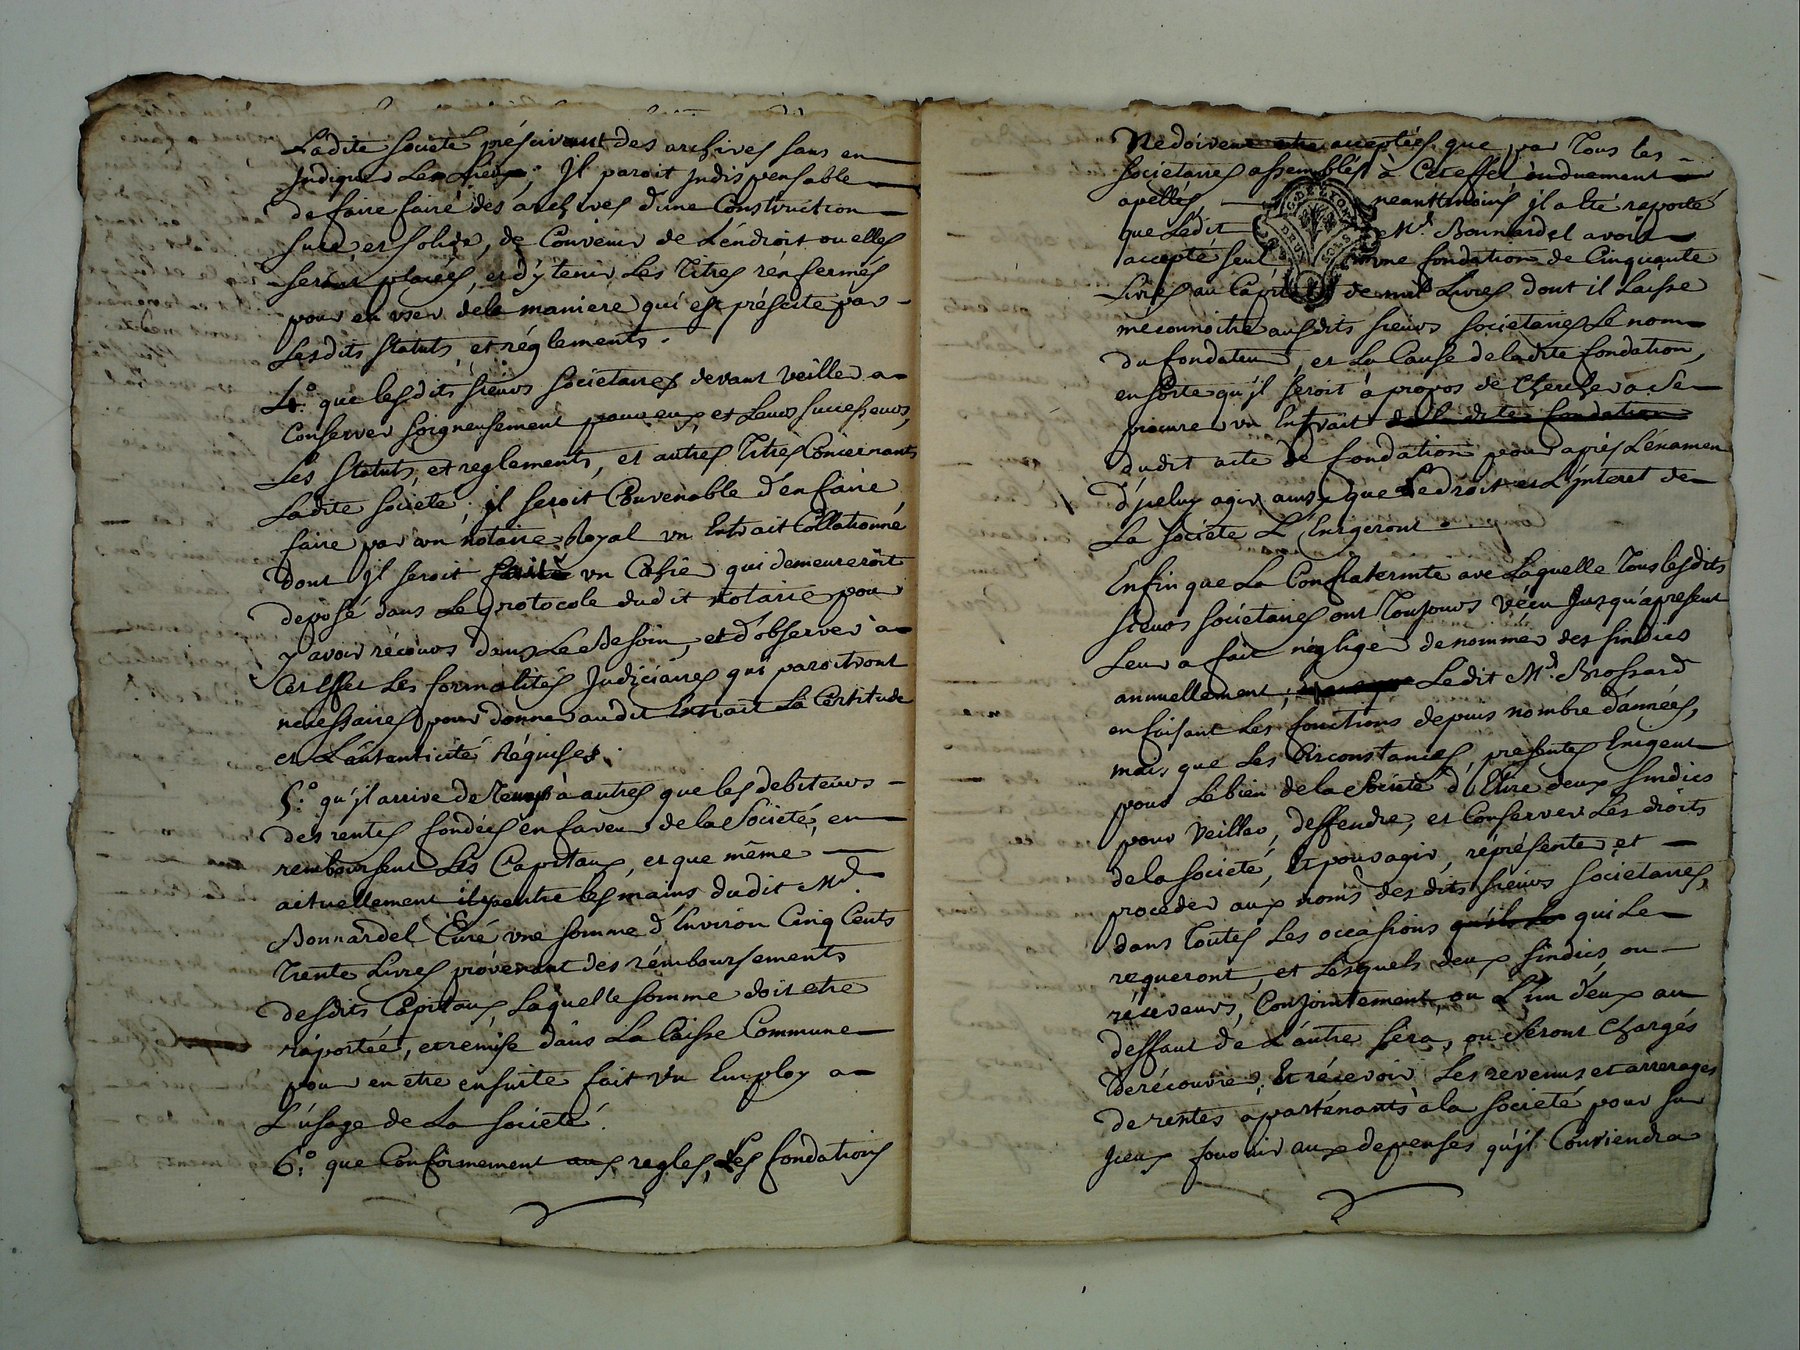 Ladite Societé préscivant des archives sans en
Indiquer Les Lieux; Il paroit Indispensable
de faire faire des archives d'une Construction
sure, et solide, de Convenir de L'éndroit ou elles
seront placeés, et d'y tenir Les Titres rénfermés
pour en user dela maniere qui est préscite par
Lesdits statuts, et réglements.
4.° que lesdits sieurs societaires devant veiller a
Conserver soigneusement pour eux, et Leurs successeurs,
Les statuts, et reglements, et autres Titres Concernants
Ladite societé, il seroit Convenable d'en faire
faire par un notaire Royal un Extrait Collationné
dont il seroit un Cahié qui demeureroit
deposé dans Le protocole dudit notaire pour
y avoir récours dans Le Besoin, et d'observer a
Cet Effet Les formalités Judiciaires qui paroitront
necessaires pour donner audit Extrait La Certitude
et L'autanticité Réquises.
5.° qu'il arrive de Temps à autres que les debiteurs
des rentes fondées en faveur de la Societé, en
remboursent Les Capitaux, et que même
actuellement il y a entre les mains dudit Mr.
Bonnardel Curé une somme d'Environ Cinq Cents
Trente Livres provenant des rémboursements
desdits Capitaux, Laquelle somme doit etre
raportée, et remise dans La Caisse Commune
pour en etre ensuite fait un Employ a
L'usage de La Societé.
6.° que Conformement aux regles, Les fondations
Ne doivent etre acceptées que par Tous les
Societaires assemblés à Cet effet et duement
apellés, neantmoins il a été raporté
que Ledit Mr. Bonnardel avoit
accepté seul une fondation de Cinquante
Livres au Capital de mil Livres dont il Laisse
meconnoitre ausdits sieurs societaires Le nom
du fondateur, et La Cause de ladite fondation,
en sorte qu'il seroit à propos de Chercher a Se
procurer un Extrait de la dite fondation
dudit acte de fondation pour apres L'éxamen
d'jceluy agir ainsy que Le droit et L'jnteret de
La Societé L'Exigeront.
Enfin que La Confraternité avec Laquelle Tous lesdits
sieurs societaires ont Toujours vécu Jusqu'apresent
Leur a fait négliger de nommer des sindics
annuellement, Ledit Mr. Brossard
en faisant Les fonctions depuis nombre d'années,
mais que Les Circonstances, presentes Exigent
pour Le bien de la Societé d'Elire deux sindics
pour veiller, deffendre, et Conserver Les droits
de la societé, Et pour agir, représenter et
proceder aux noms des dits sieurs Societaires,
dans Toutes Les occasions qui Le
requeront, et Lesquels deux sindics, ou
réceveurs, Conjointement, ou L'un d'eux au
deffaut de L'autre sera, ou seront Chargés
De récouvrer, Et récevoir Les revenus et arrerages
de rentes apartenants a la Societé pour sur
jceux fournir aux depenses qu'il Conviendra